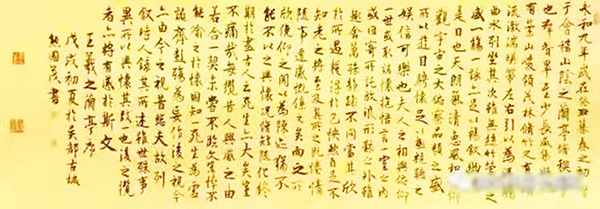 永和九年歲在癸丑暮春之初會
于會稽山陰之蘭亭脩禊事
也群賢畢至少長咸集此地
有崇山峻領茂林脩竹又有清
流激湍暎帶左右引以為流觴
曲水列坐其次雖無絲竹管弦之
盛一觴一詠亦足以暢敘幽情
是日也天朗氣清惠風和暢仰
觀宇宙之大俯察品類之盛
所以遊目騁懷足以極視聽之
娛信可樂也夫人之相與俯仰
一世或取諸懷抱悟言一室之內
或因寄所託放浪形骸之外雖
趣舍萬殊靜躁不同當其欣
於所遇暫得於己快然自足不
知老之將至及其所之既惓情
隨事遷感慨係之矣向之所
欣俛仰之間以為陳跡猶不
能不以之興懷況脩短隨化終
期於盡古人云死生亦大矣豈
不痛哉每攬昔人興感之由
若合一契未嘗不臨文嗟悼不
能喻之於懷固知一死生為虛
誕齊彭殤為妄作後之視今
亦由今之視昔悲夫故列
敘時人錄其所述雖世殊事
異所以興懷其致一也後之攬
者亦將有感於斯文
王羲之蘭亭序
戊戌初夏於吳郡古城
熊國茂書